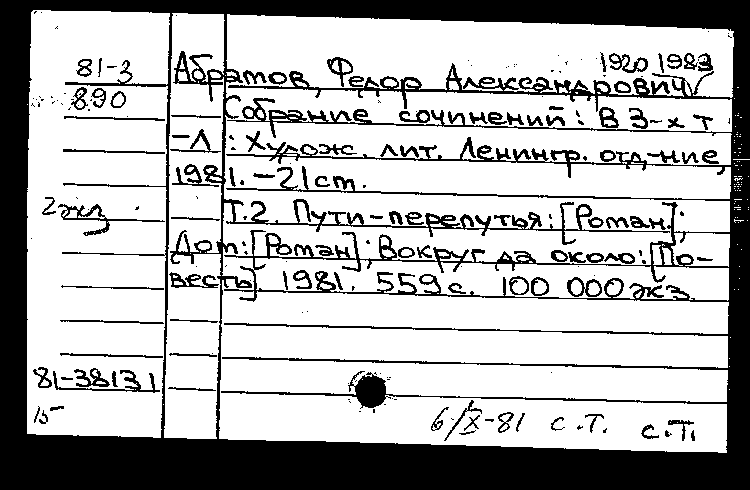 1920 1983
81-3 Абрамов, Федор Александрович
890 Собрание сочинений: В 3-х т
-Л: Худож. лит. Ленингр. отд-ние,
1981. -21см.
2 экз Т.2. Пути-перепутья: [Роман.];
Дом: [Роман]; Вокруг да около: [По-
весть]. 1981. 559с. 100 000 экз.
81-38131
15-
6/X-81 с.т. с.т.